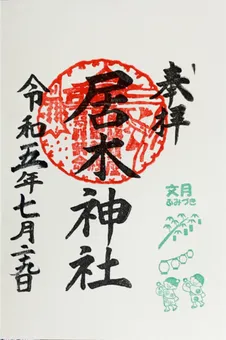 奉拝
居木神社
令和五年七月二九日
文月
ふみづき